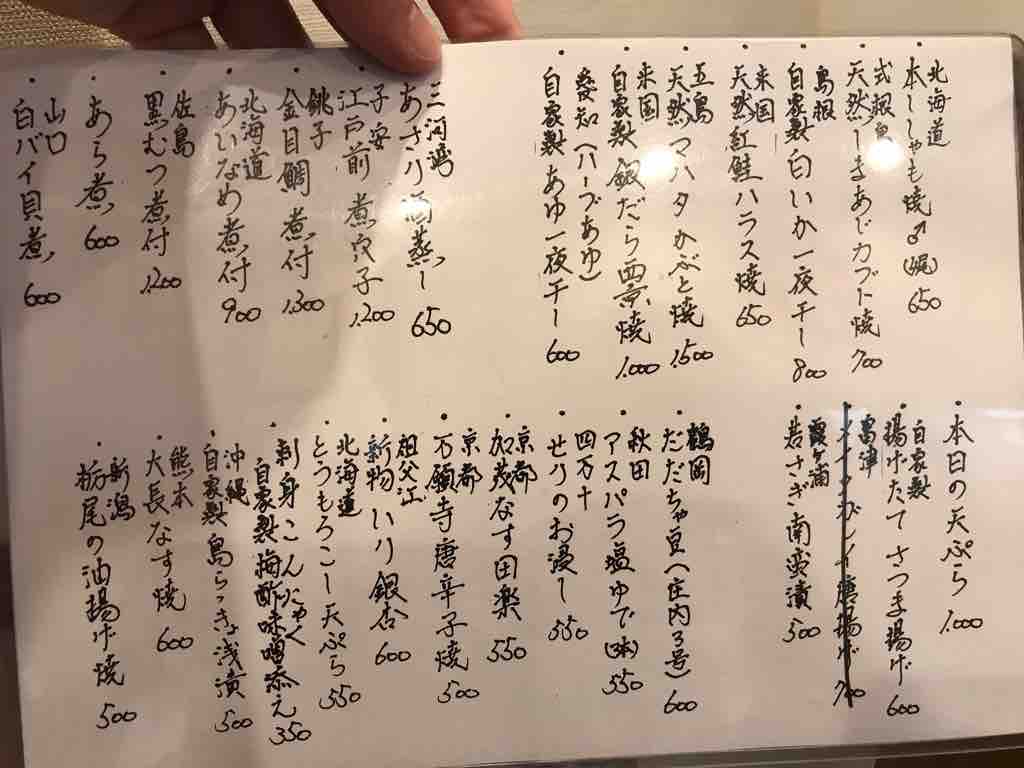 北海道
・本ししゃも焼♂ 650
式根島
・天然しまあじカブト焼 700
島根
・自家製白いか一夜干し 800
米国
・天然紅鮭ハラス焼 650
五島
・天然マハタかぶと焼 1.500
米国
・自家製銀だら西京焼 1.000
愛知(ハーブあゆ)
・自家製あゆ一夜干し 600
三河湾
・あさり酒蒸し 650
子安
・江戸前煮穴子 1.200
銚子
・金目鯛煮付 1.300
北海道
・あいなめ煮付 900
佐島
・黒むつ煮付 1.200
・あら煮 600
山口
・白バイ貝煮 600
・本日の天ぷら 1.000
自家製
・揚げたてさつま揚げ 600
唐揚げ 700
霞ヶ浦
・若さぎ南蛮漬 500
鶴岡
・だだちゃ豆(庄内3号) 600
秋田
・アスパラ塩ゆで(3本) 550
四万十
・せりのお浸し 550
京都
・加茂なす田楽 550
京都
・万願寺唐辛子焼 500
祖父江
・新物いり銀杏 600
北海道
・とうもろこし天ぷら 550
・刺身こんにゃく
自家製梅酢味噌添え 350
沖縄
・自家製島らっきょ浅漬 500
熊本
・大長なす焼 600
新潟
・栃尾の油揚げ焼 500